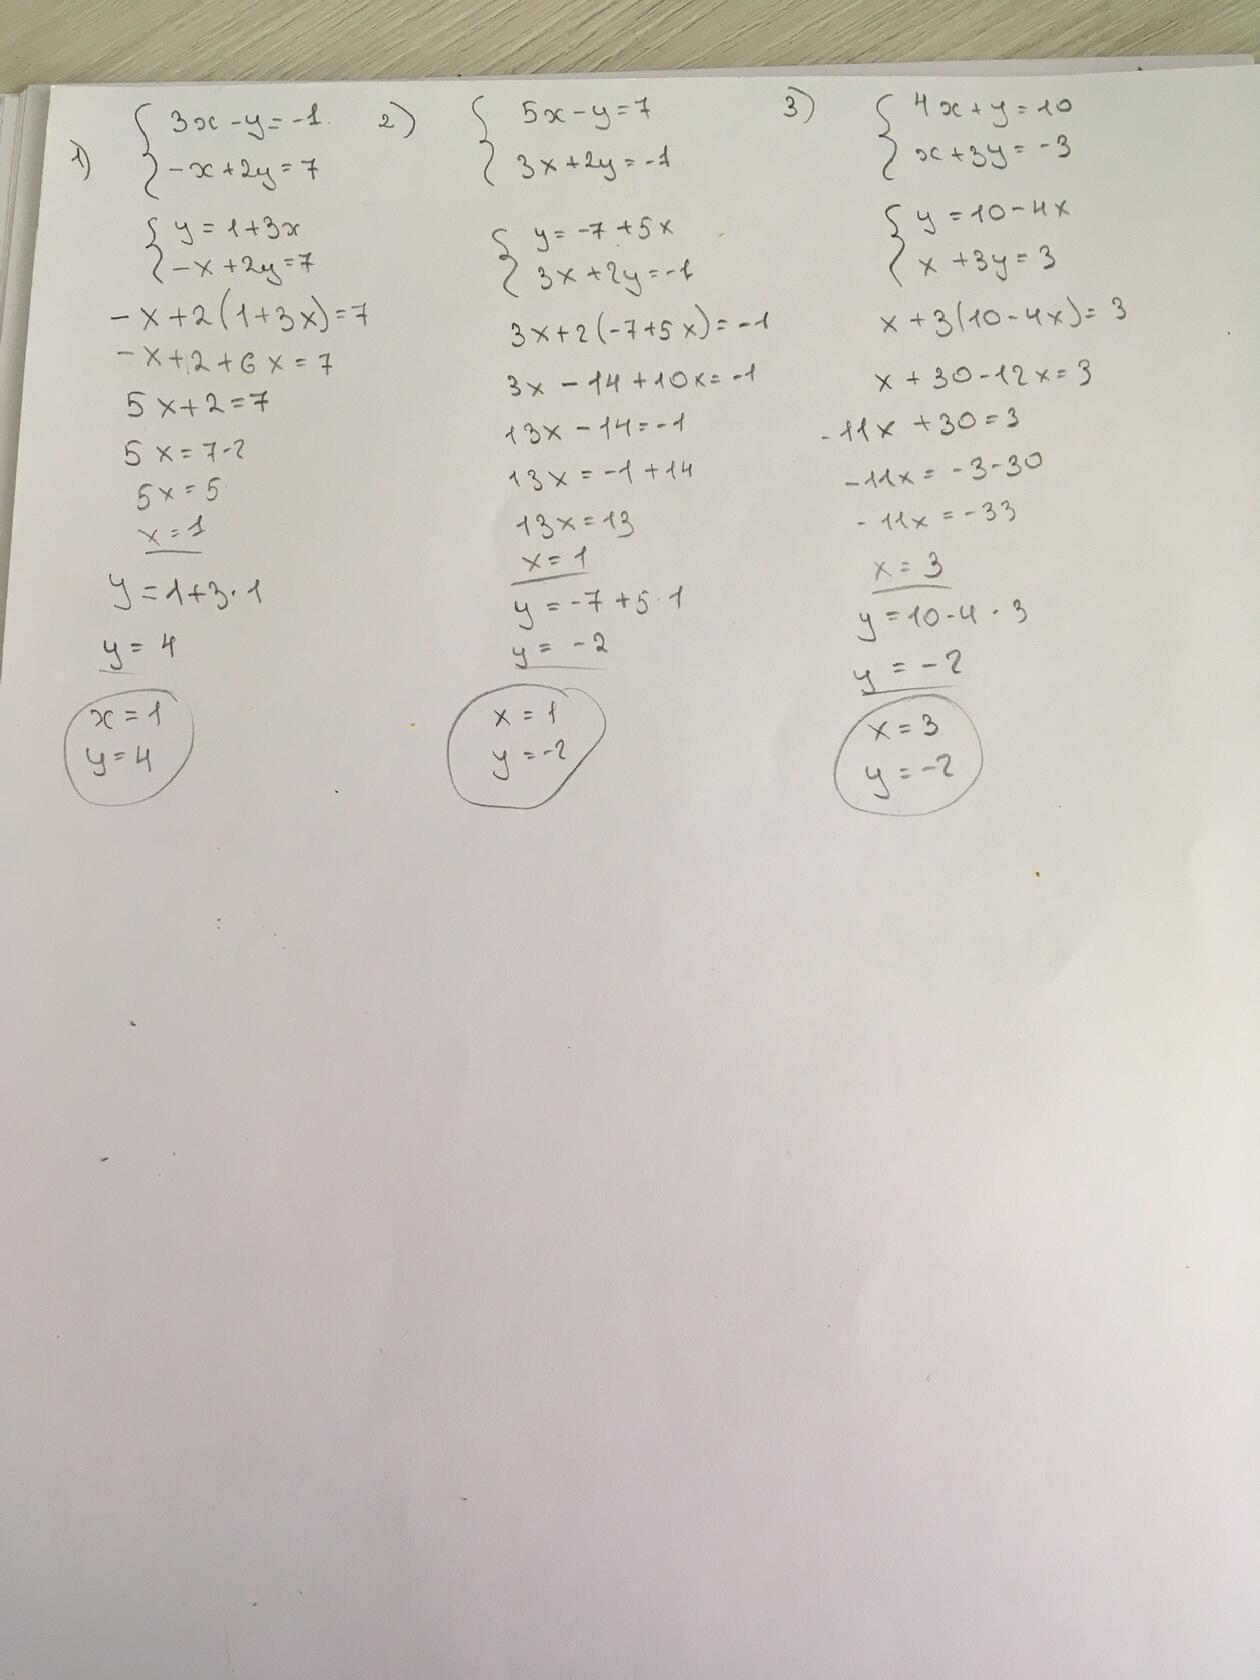 1)
{ 3x - y = -1.
-x + 2y = 7
{ y = 1 + 3x
-x + 2y = 7
-x + 2(1 + 3x) = 7
-x + 2 + 6x = 7
5x + 2 = 7
5x = 7 - 2
5x = 5
x = 1
y = 1 + 3 · 1
y = 4
x = 1
y = 4
2)
{ 5x - y = 7
3x + 2y = -1
{ y = -7 + 5x
3x + 2y = -1
3x + 2(-7 + 5x) = -1
3x - 14 + 10x = -1
13x - 14 = -1
13x = -1 + 14
13x = 13
x = 1
y = -7 + 5 · 1
y = -2
x = 1
y = -2
3)
{ 4x + y = 10
x + 3y = -3
{ y = 10 - 4x
x + 3y = 3
x + 3(10 - 4x) = 3
x + 30 - 12x = 3
-11x + 30 = 3
-11x = -3 - 30
-11x = -33
x = 3
y = 10 - 4 · 3
y = -2
x = 3
y = -2